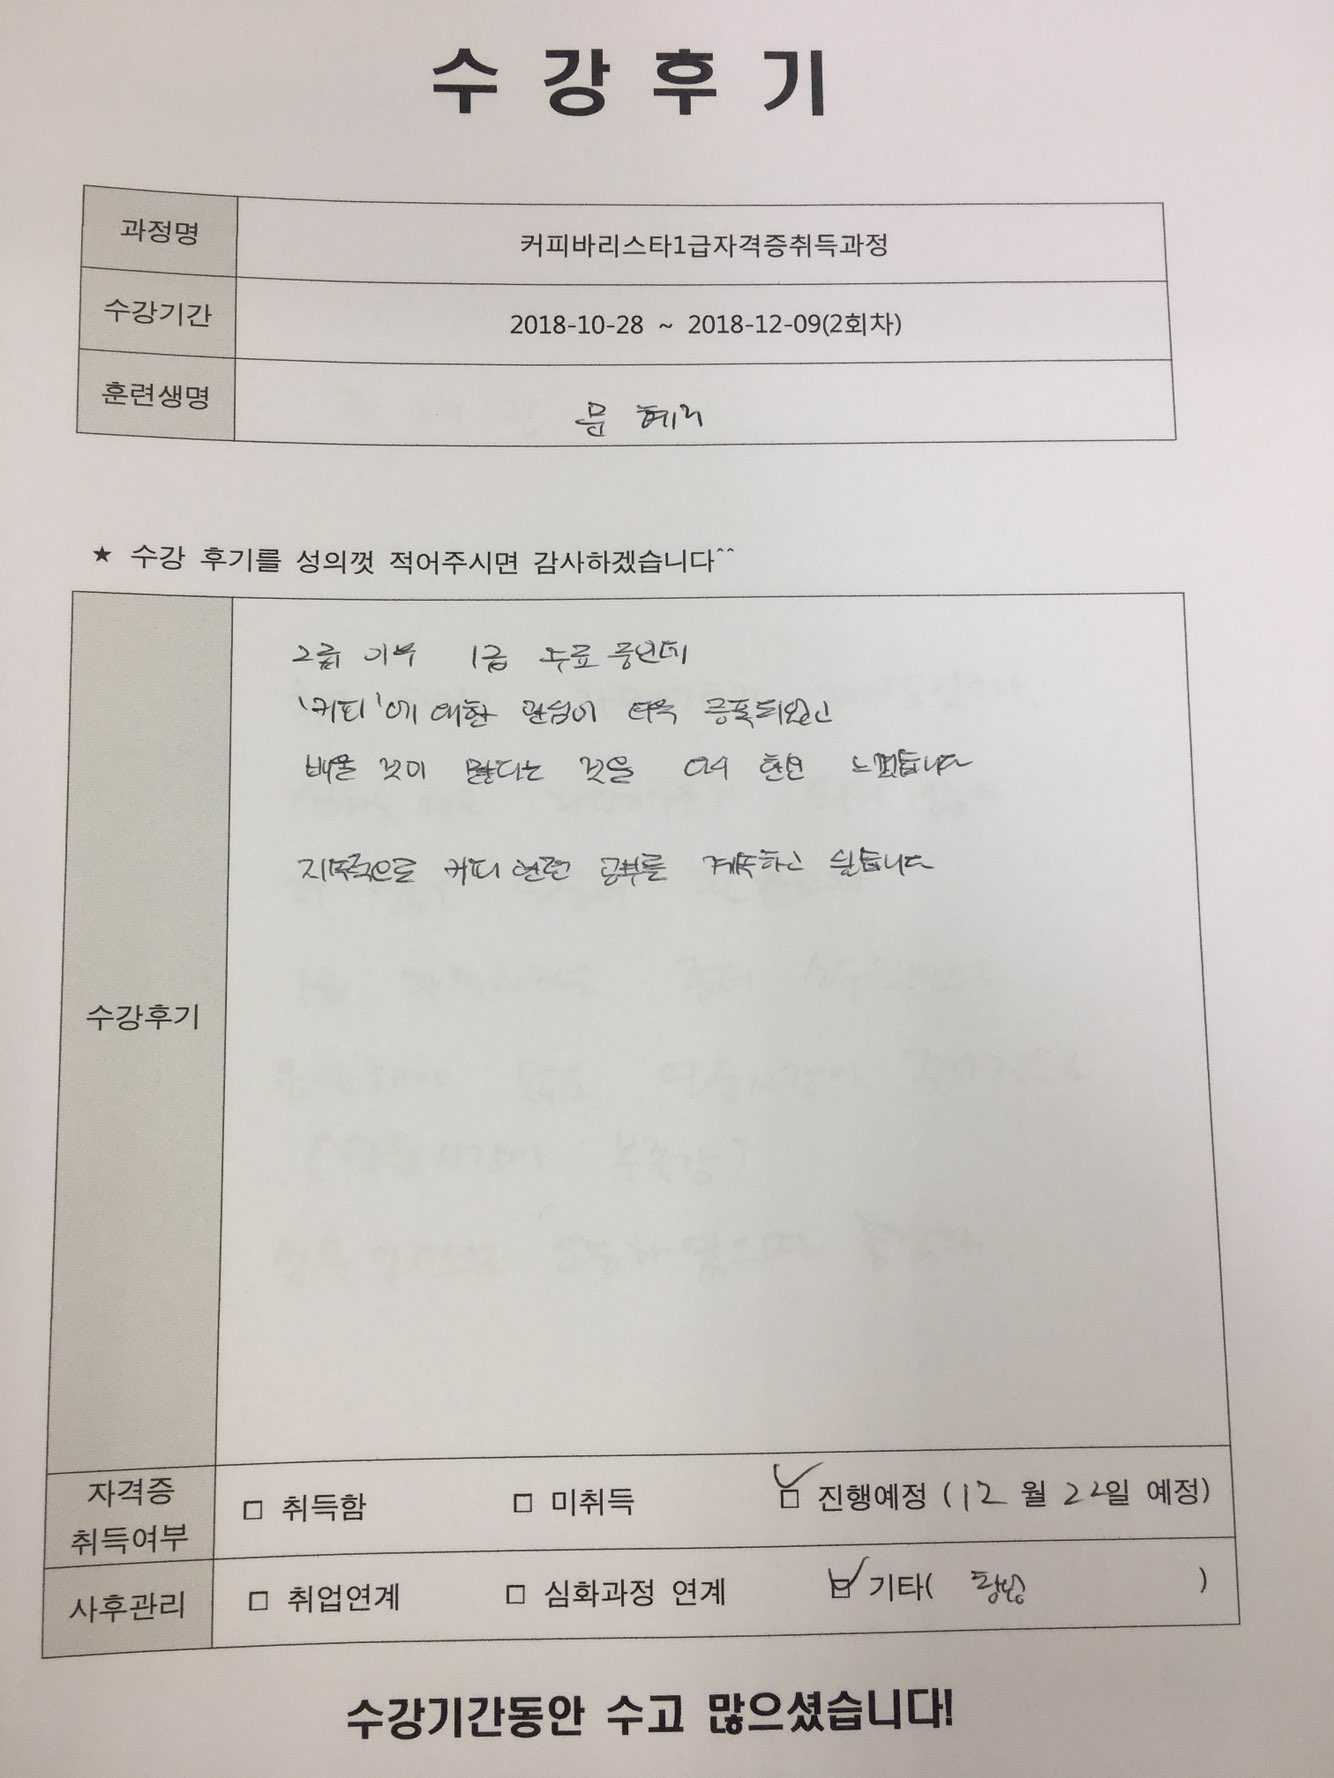 수강후기
과정명 커피바리스타1급자격증취득과정
수강기간 2018-10-28 ~ 2018-12-09(2회차)
훈련생명 문 혜리
★ 수강 후기를 성의껏 적어주시면 감사하겠습니다^^
2급 이후 1급 수료 중인데
'커피'에 대한 관심이 더욱 증폭되었고
배울 것이 많다는 것을 다시 한번 느꼈습니다
지속적으로 커피 관련 공부를 계속하고 싶습니다
수강후기
자격증 취득여부 □ 취득함 □ 미취득 ☑ 진행예정 (12 월 22일 예정)
사후관리 □ 취업연계 □ 심화과정 연계 ☑ 기타( 창업 )
수강기간동안 수고 많으셨습니다!